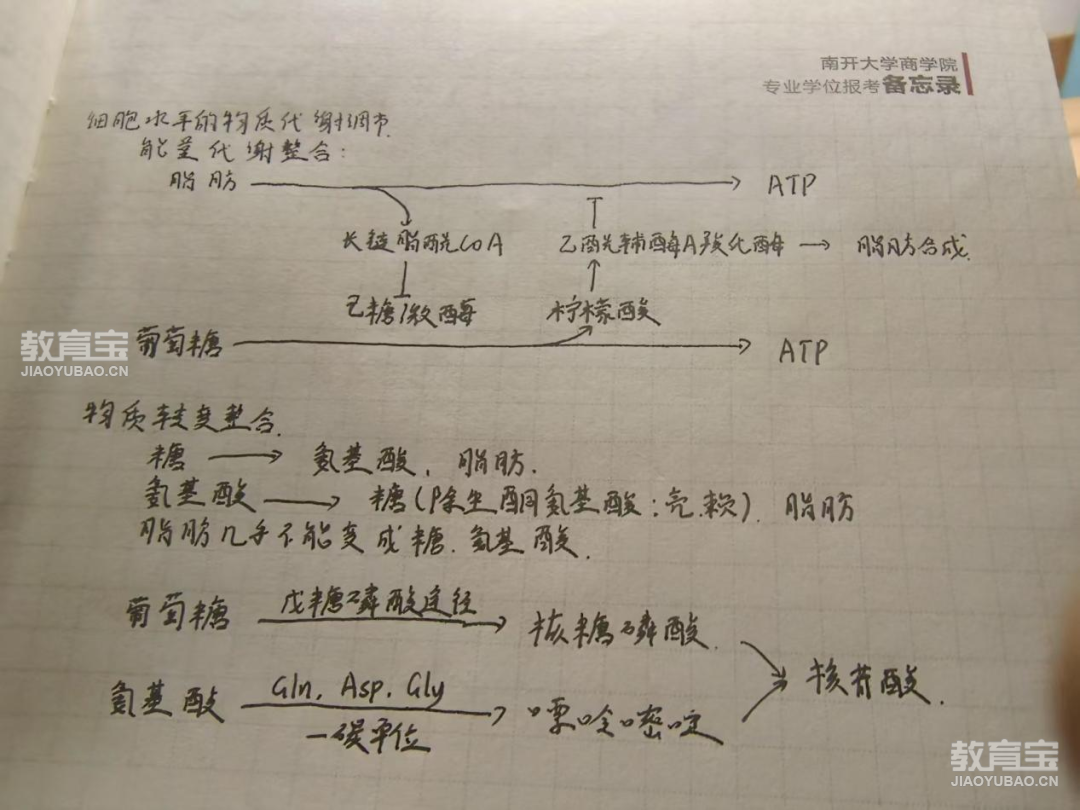 南开大学商学院
专业学位报考备忘录
细胞水平的物质代谢调节.
能量代谢整合:
脂肪 → ATP
长链脂酰CoA 乙酰辅酶A羧化酶 → 脂肪合成.
己糖激酶 柠檬酸
葡萄糖 → ATP
教育宝
JIAOYUBAO.CN
物质转变整合.
糖 → 氨基酸, 脂肪.
氨基酸 → 糖(除生酮氨基酸:亮.赖). 脂肪
脂肪几乎不能变成糖.氨基酸.
葡萄糖 戊糖磷酸途径 → 核糖磷酸.
核苷酸.
氨基酸 Gln, Asp, Gly → 嘌呤嘧啶
一碳单位
教育宝
JIAOYUBAO.CN